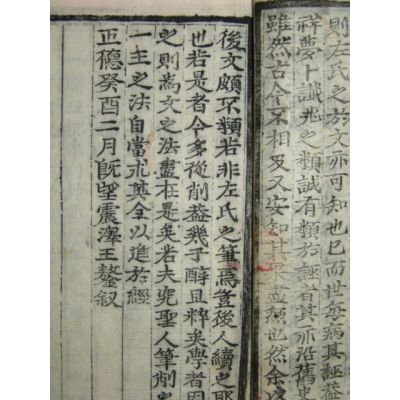 則左氏之於文亦可知也已而世每病其誣蓋
祥夢卜讖兆之類誠有類於誣者其亦沿舊史
雖然古今不相及又安知其盡然也然余以
後文頗不類若非左氏之筆焉豈後人續之耶
也若是者今多從削蓋幾于醇且粹矣學者因
之則為文之法盡在是矣若夫究聖人筆削之
一主之法自當求其全以進於經
正德癸酉二月既望震澤王鏊叙